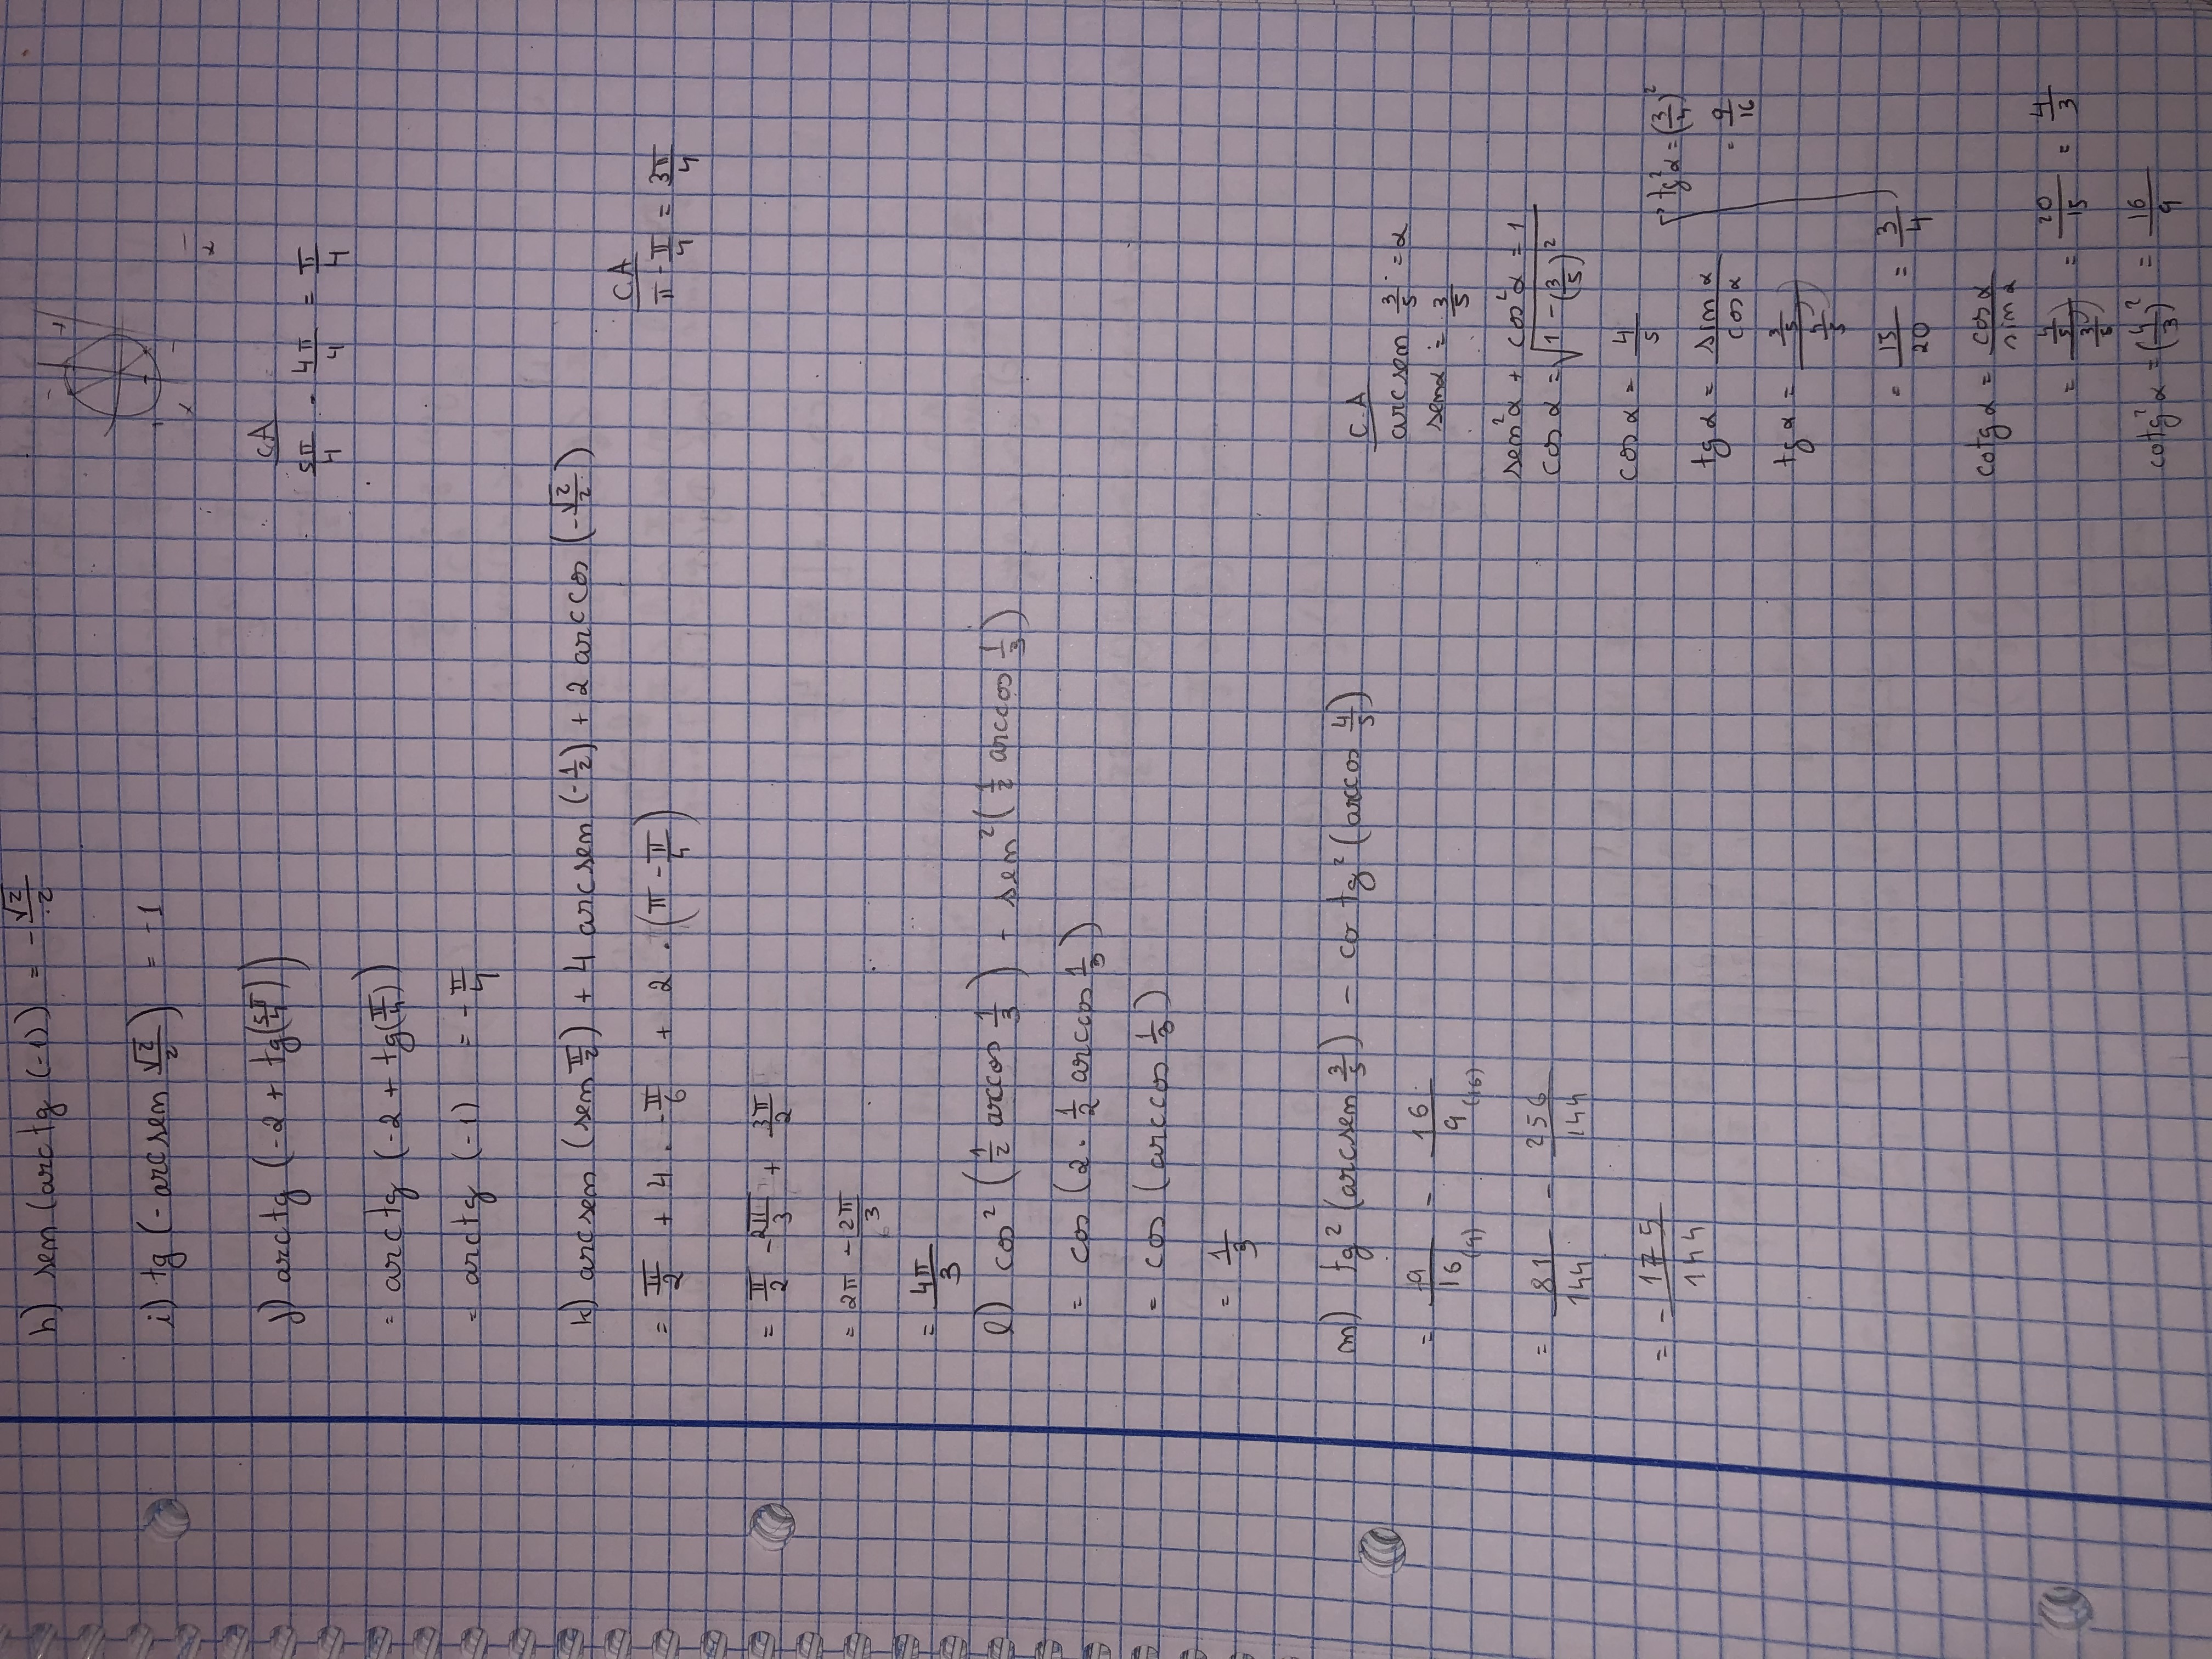 h) sen (arctg (-1)) = -√2/2
i) tg (-arcsen √2/2) = -1
j) arctg (-2 + tg(5π/4))
CA
5π/4 - 4π/4 = π/4
= arctg (-2 + tg(π/4))
= arctg (-1) = -π/4
k) arcsen (sen π/2) + 4 arcsen (-1/2) + 2 arccos (-√2/2)
= π/2 + 4 · -π/6 + 2 · (π - π/4)
CA
π - π/4 = 3π/4
= π/2 - 2π/3 + 3π/2
= 2π - 2π/3
= 4π/3
l) cos² (1/2 arccos 1/3) - sen² (1/2 arccos 1/3)
= cos (2 · 1/2 arccos 1/3)
= cos (arccos 1/3)
= 1/3
m) tg² (arcsen 3/5) - cotg² (arccos 4/5)
= 9/16 (9) - 16/9 (16)
= 81/144 - 256/144
= - 175/144
C.A
arcsen 3/5 = α
senα = 3/5
sen²α + cos²α = 1
cos α = √(1 - (3/5)²)
cos α = 4/5
tg α = sin α/cos α
tg α = (3/5)/(4/5)
= 15/20 = 3/4
tg²α = (3/4)²
= 9/16
cotg α = cosα/sinα
= (4/5)/(3/5) = 20/15 = 4/3
cotg²α = (4/3)² = 16/9